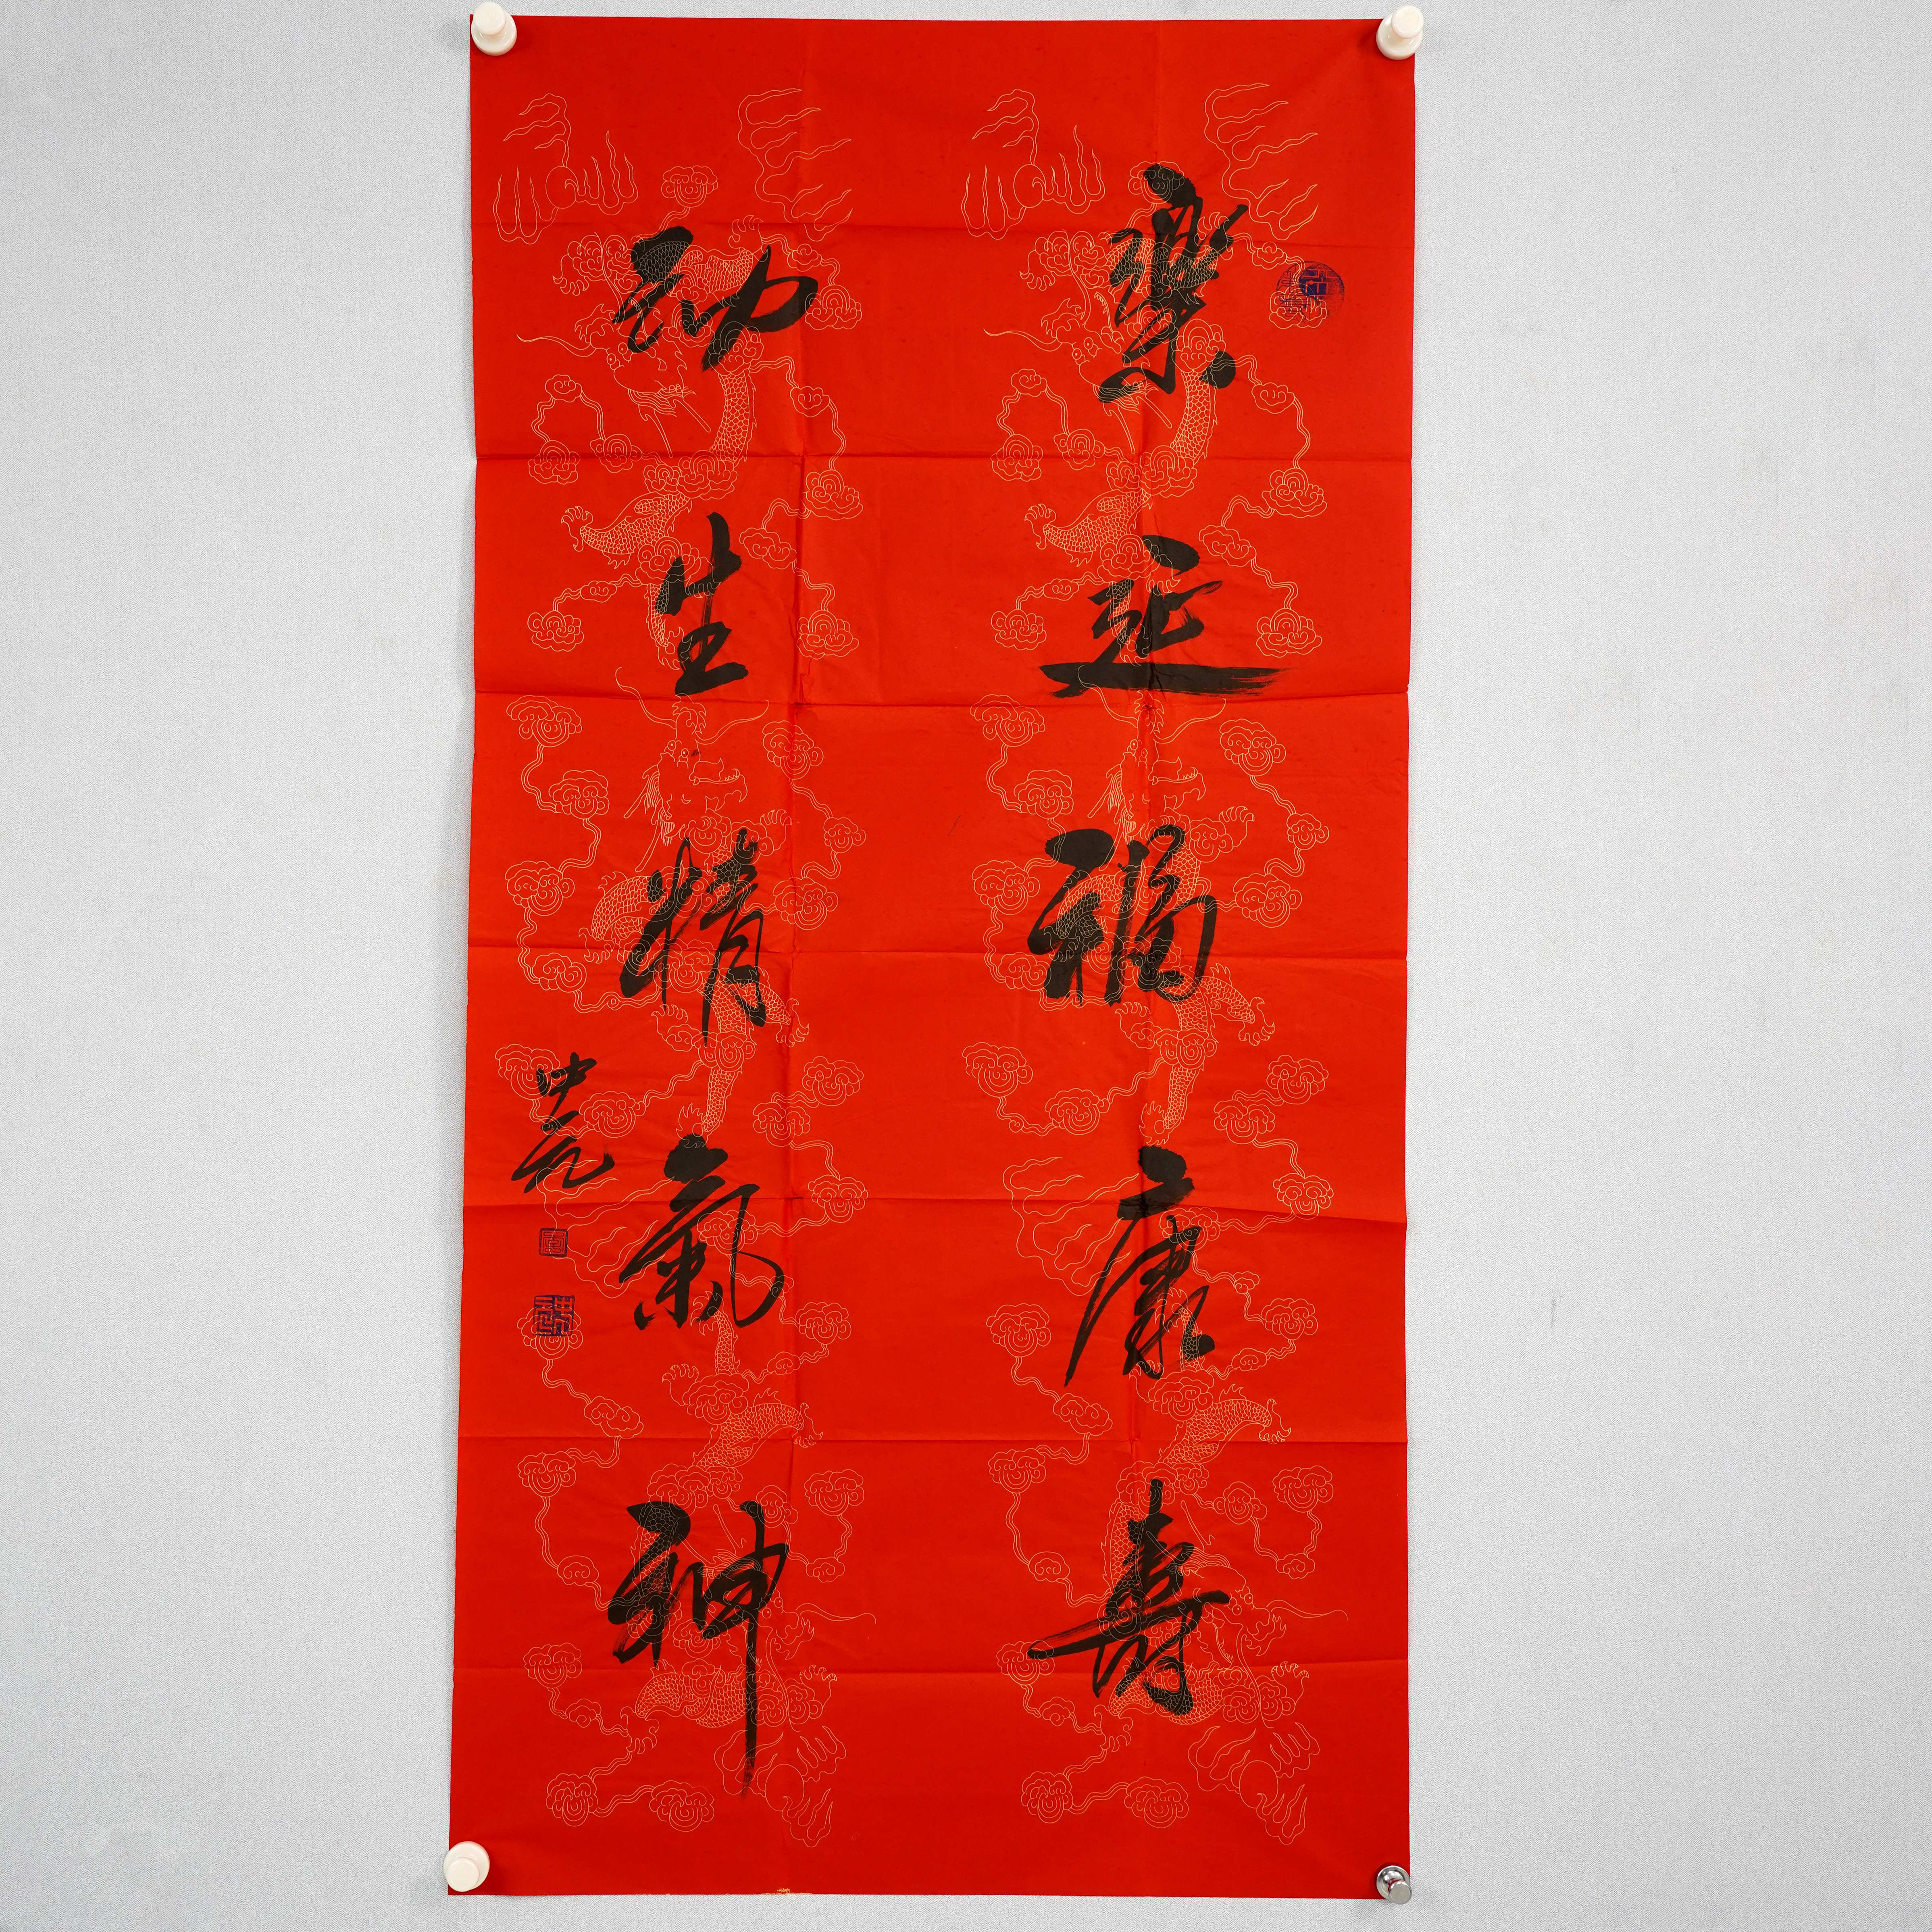 樂延福康壽
動生精氣神